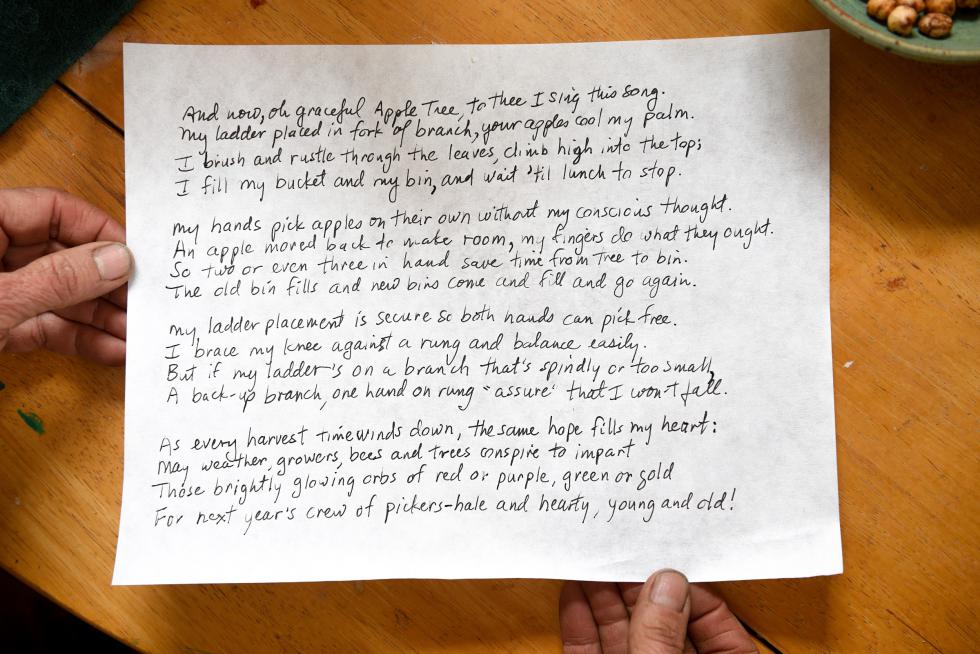 And now, oh graceful Apple Tree, to thee I sing this song.
My ladder placed in fork of branch, your apples cool my palm.
I brush and rustle through the leaves, climb high into the top;
I fill my bucket and my bin, and wait 'til lunch to stop.
My hands pick apples on their own without my conscious thought.
An apple moved back to make room, my fingers do what they ought.
So two or even three in hand save time from Tree to bin.
The old bin fills and new bins come and fill and go again.
My ladder placement is secure so both hands can pick free.
I brace my knee against a rung and balance easily.
But if my ladder's on a branch that's spindly or too small,
A back-up branch, one hand on rung "assure" that I won't fall.
As every harvest time winds down, the same hope fills my heart:
May weather, growers, bees and trees conspire to impart
Those brightly glowing orbs of red or purple, green or gold
For next year's crew of pickers-hale and hearty, young and old!